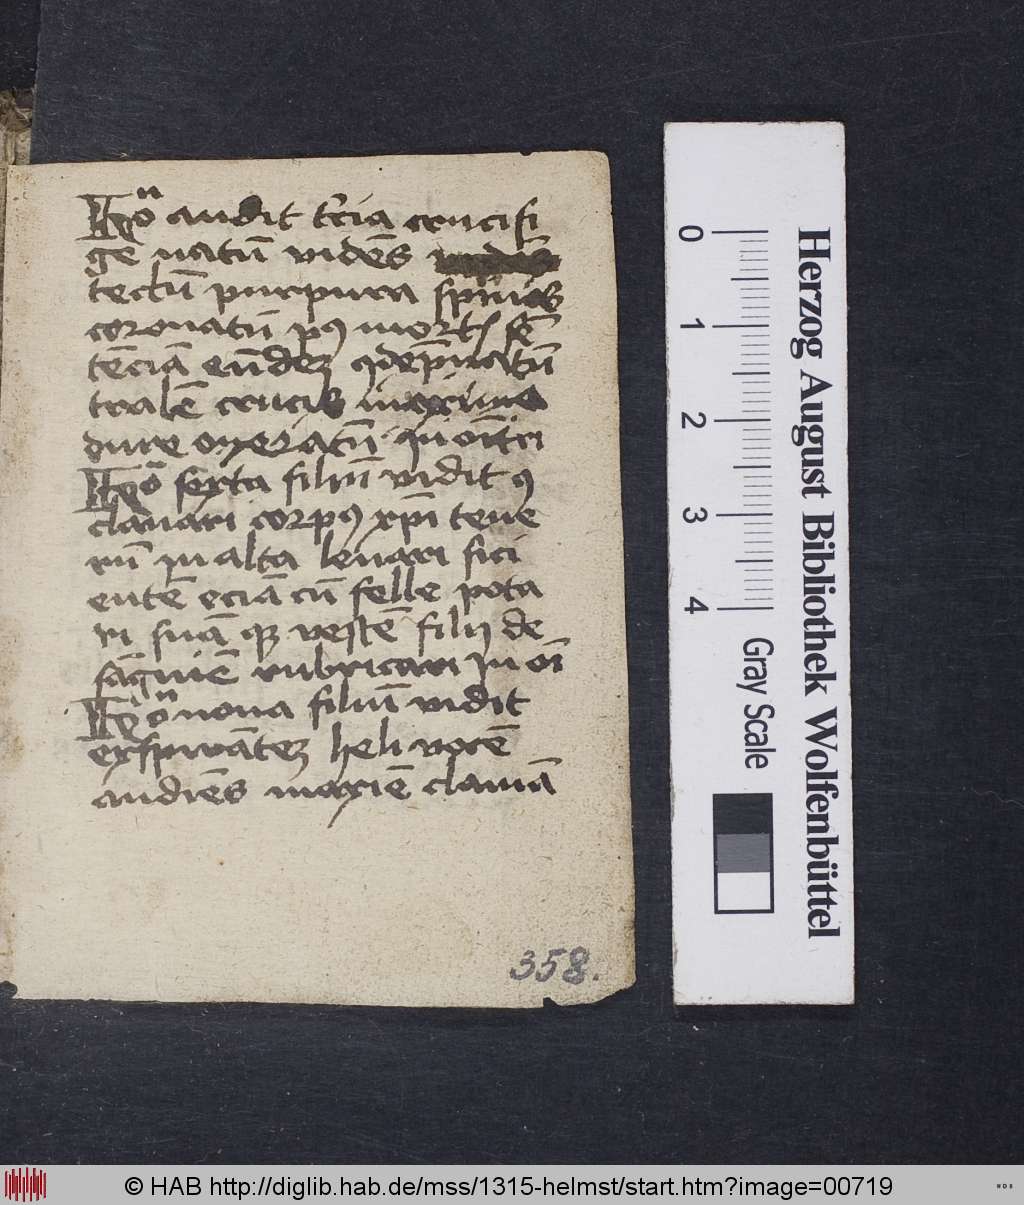 audit t̄cia crucifi
ge natū videns
tectū purpura spinis
coronatū pꝰ mortis sē
tēciā eūdez 9dēpnatū
trabē crucis maxime
dure oneratū
sexta filiū vidit
clavari corpꝰ xpi tene
rū in alta levari siti
entē eciā cū felle pota
ri suā qꝫ vestē filij de
sāgwīe rubricari In oī
nona filiū vidit
exspirātez heli vocē
audiēs maxīe clamā
358.
Herzog August Bibliothek Wolfenbüttel
0 1 2 3 4
Gray Scale
© HAB http://diglib.hab.de/mss/1315-helmst/start.htm?image=00719